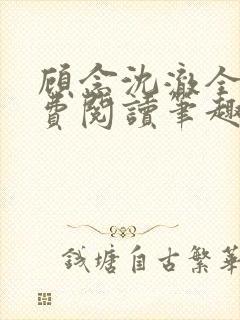 顾念沈澈全
费阅读笔趣
钱塘自古繁华